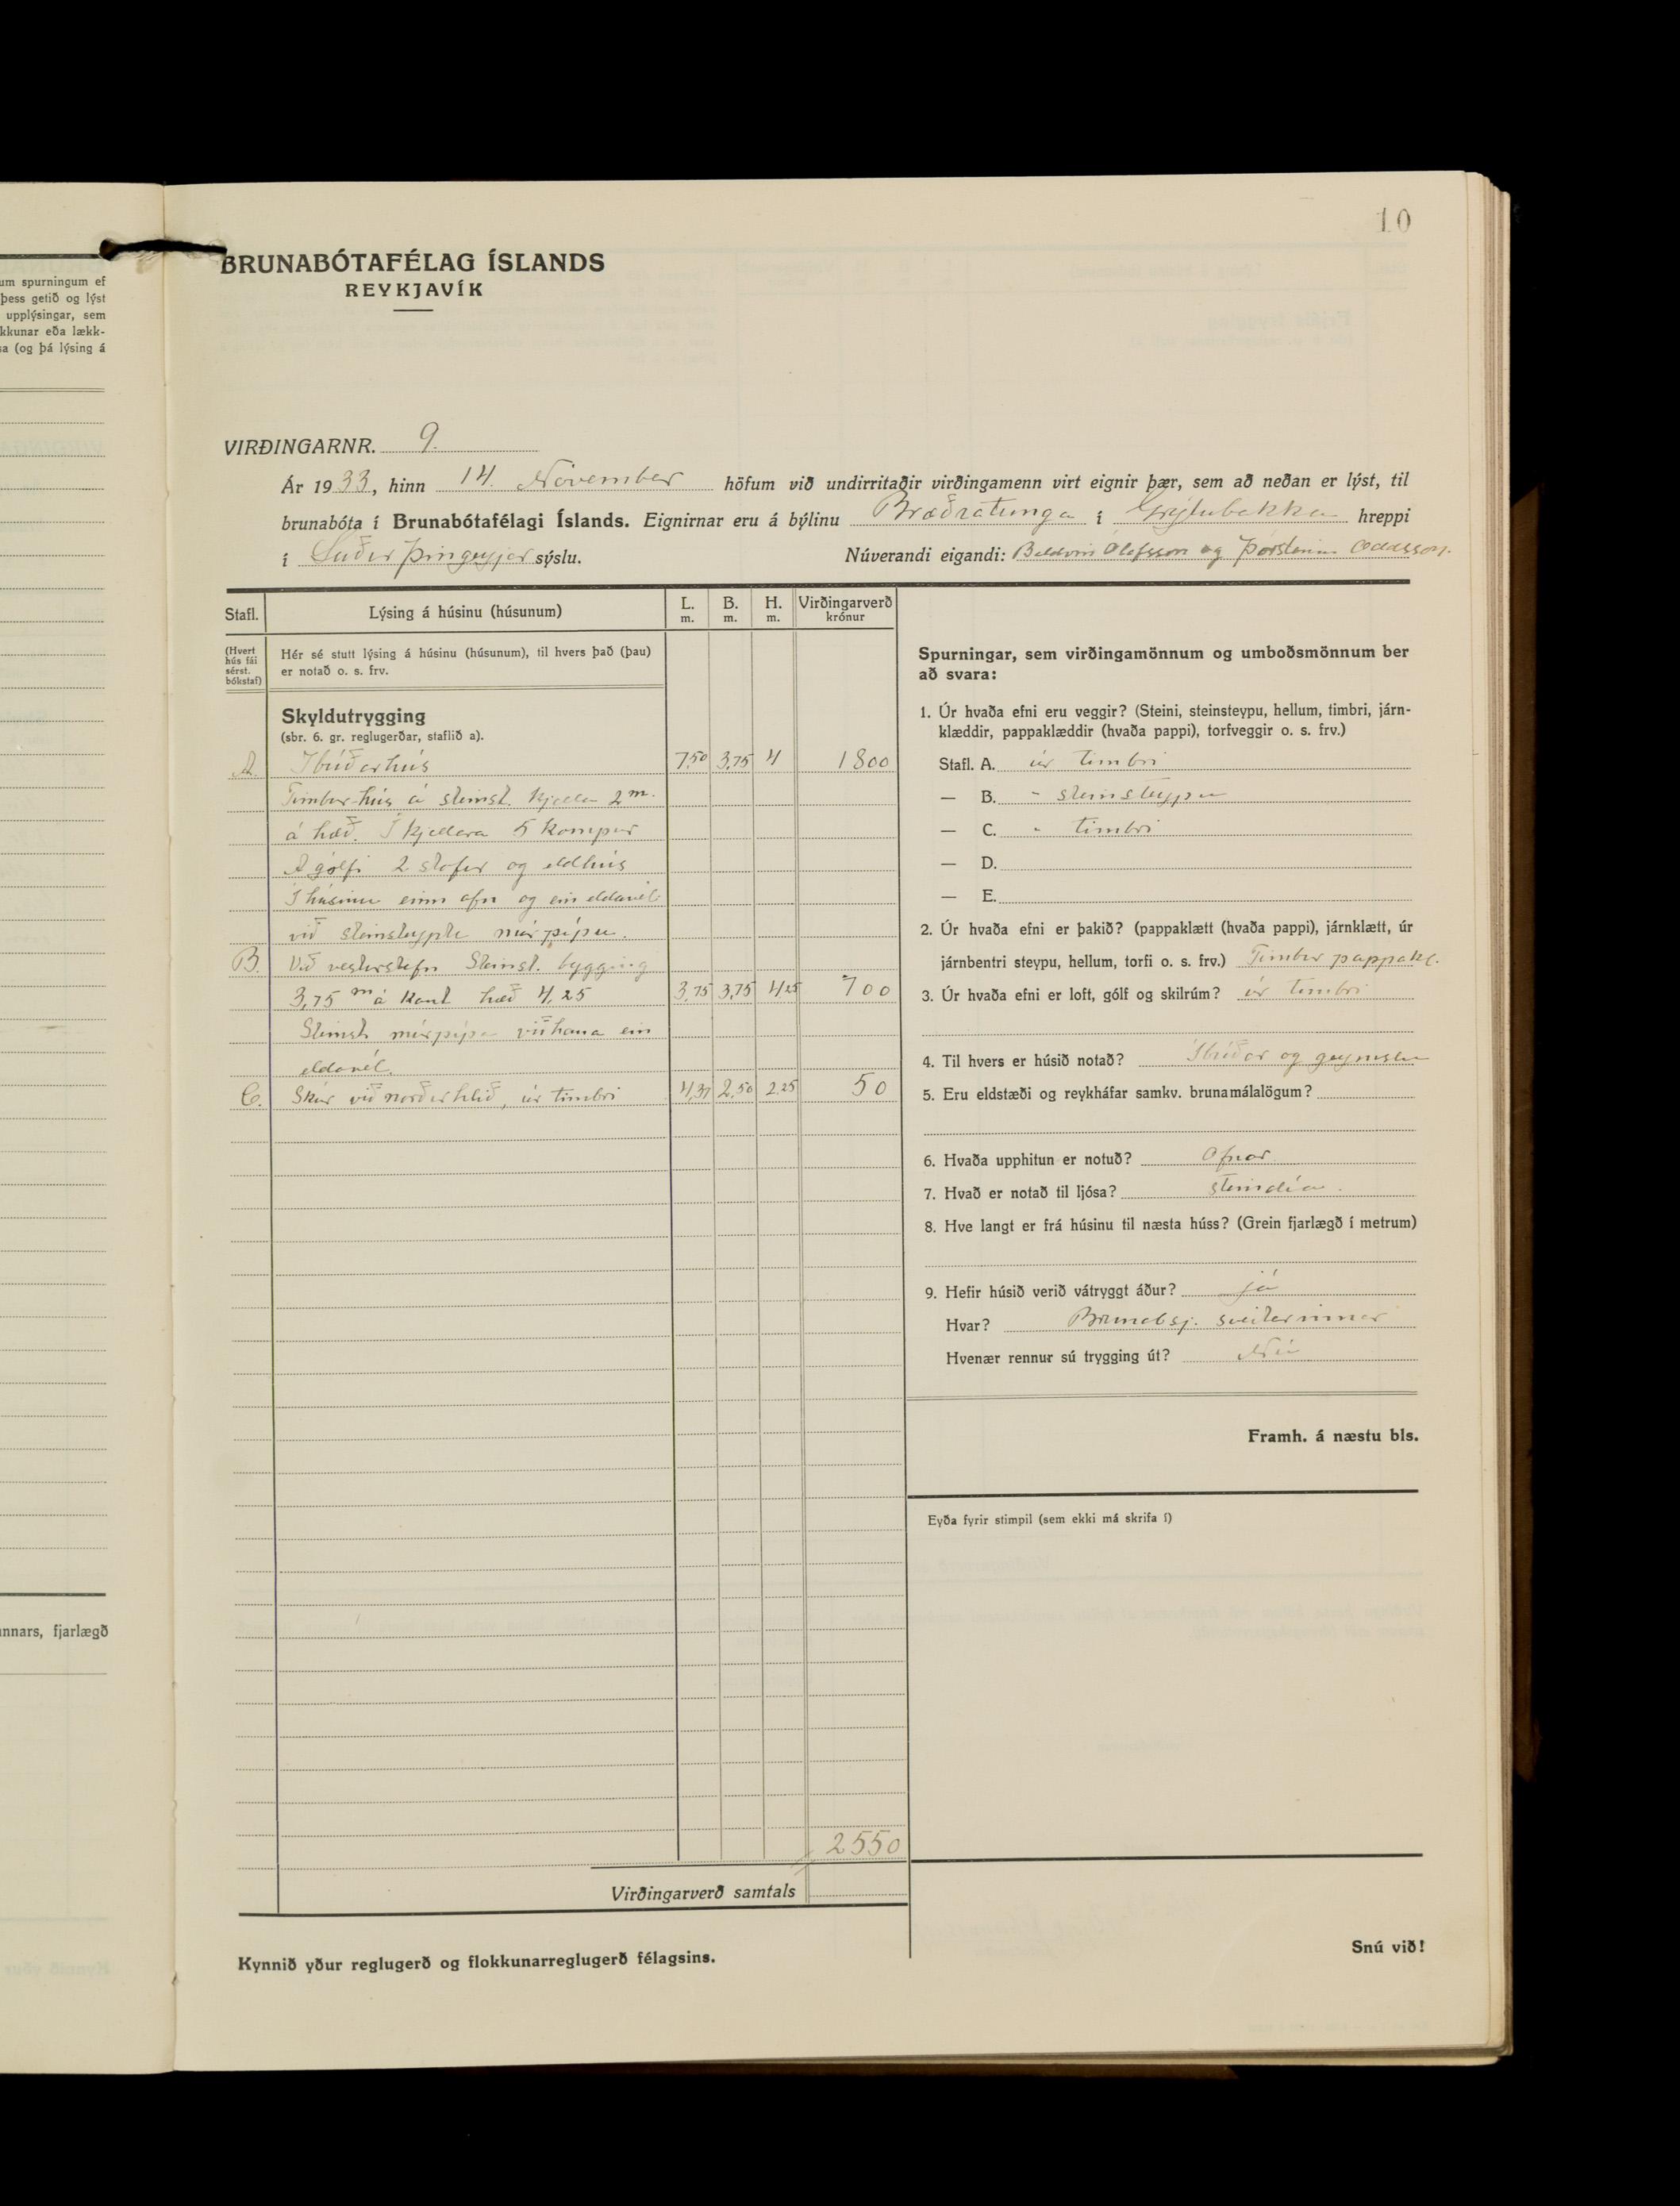 um spurningum ef
þess getið og lýst
upplýsingar, sem
kkunar eða lækk-
sa (og þá lýsing á
nnars, fjarlægð
10
BRUNABÓTAFÉLAG ÍSLANDS
REYKJAVÍK
VIRÐINGARNR. 9.
Ár 1933, hinn 14. November höfum við undirritaðir virðingamenn virt eignir þær, sem að neðan er lýst, til
brunabóta í Brunabótafélagi Íslands. Eignirnar eru á býlinu Bræðratunga í Grýtubakka hreppi
í Suður Þingeyjar sýslu. Núverandi eigandi: Baldvin Ólafsson og Þórsteinn Oddsson.
Stafl. Lýsing á húsinu (húsunum) L. m. B. m. H. m. Virðingarverð krónur
(Hvert hús fái sérst. bókstaf)
Hér sé stutt lýsing á húsinu (húsunum), til hvers það (þau)
er notað o. s. frv.
Skyldutrygging
(sbr. 6. gr. reglugerðar, staflið a).
A. Íbúðarhús 7,50 3,75 4 1800
Timburhús á steinst. kjallara 2 m.
á hæð. Í kjallara 5 kompur
Á gólfi 2 stofur og eldhús
Í húsinu einn ofn og ein eldavél
við steinsteypte múrpípu.
B. Við vesturstafn Steinst. bygging
3,75 m á kant hæð 4,25 3,75 3,75 4,25 700
Steinst. múrpípa við hana ein
eldavél.
C. Skúr við norðurhlið, úr timbri 4,37 2,50 2,25 50
2550
Virðingarverð samtals
Kynnið yður reglugerð og flokkunarreglugerð félagsins.
Spurningar, sem virðingamönnum og umboðsmönnum ber
að svara:
1. Úr hvaða efni eru veggir? (Steini, steinsteypu, hellum, timbri, járn-
klæddir, pappaklæddir (hvaða pappi), torfveggir o. s. frv.)
Stafl. A. úr timbri
— B. " steinsteypu
— C. " timbri
— D.
— E.
2. Úr hvaða efni er þakið? (pappaklætt (hvaða pappi), járnklætt, úr
járnbentri steypu, hellum, torfi o. s. frv.) Timbur pappakl.
3. Úr hvaða efni er loft, gólf og skilrúm? úr timbri
4. Til hvers er húsið notað? Íbúðar og geymslu
5. Eru eldstæði og reykháfar samkv. brunamálalögum?
6. Hvaða upphitun er notuð? Ofnar
7. Hvað er notað til ljósa? steinolía.
8. Hve langt er frá húsinu til næsta húss? (Grein fjarlægð í metrum)
9. Hefir húsið verið vátryggt áður? já
Hvar? Brunabsj. sveitarinnar
Hvenær rennur sú trygging út? Nú
Framh. á næstu bls.
Eyða fyrir stimpil (sem ekki má skrifa í)
Snú við!